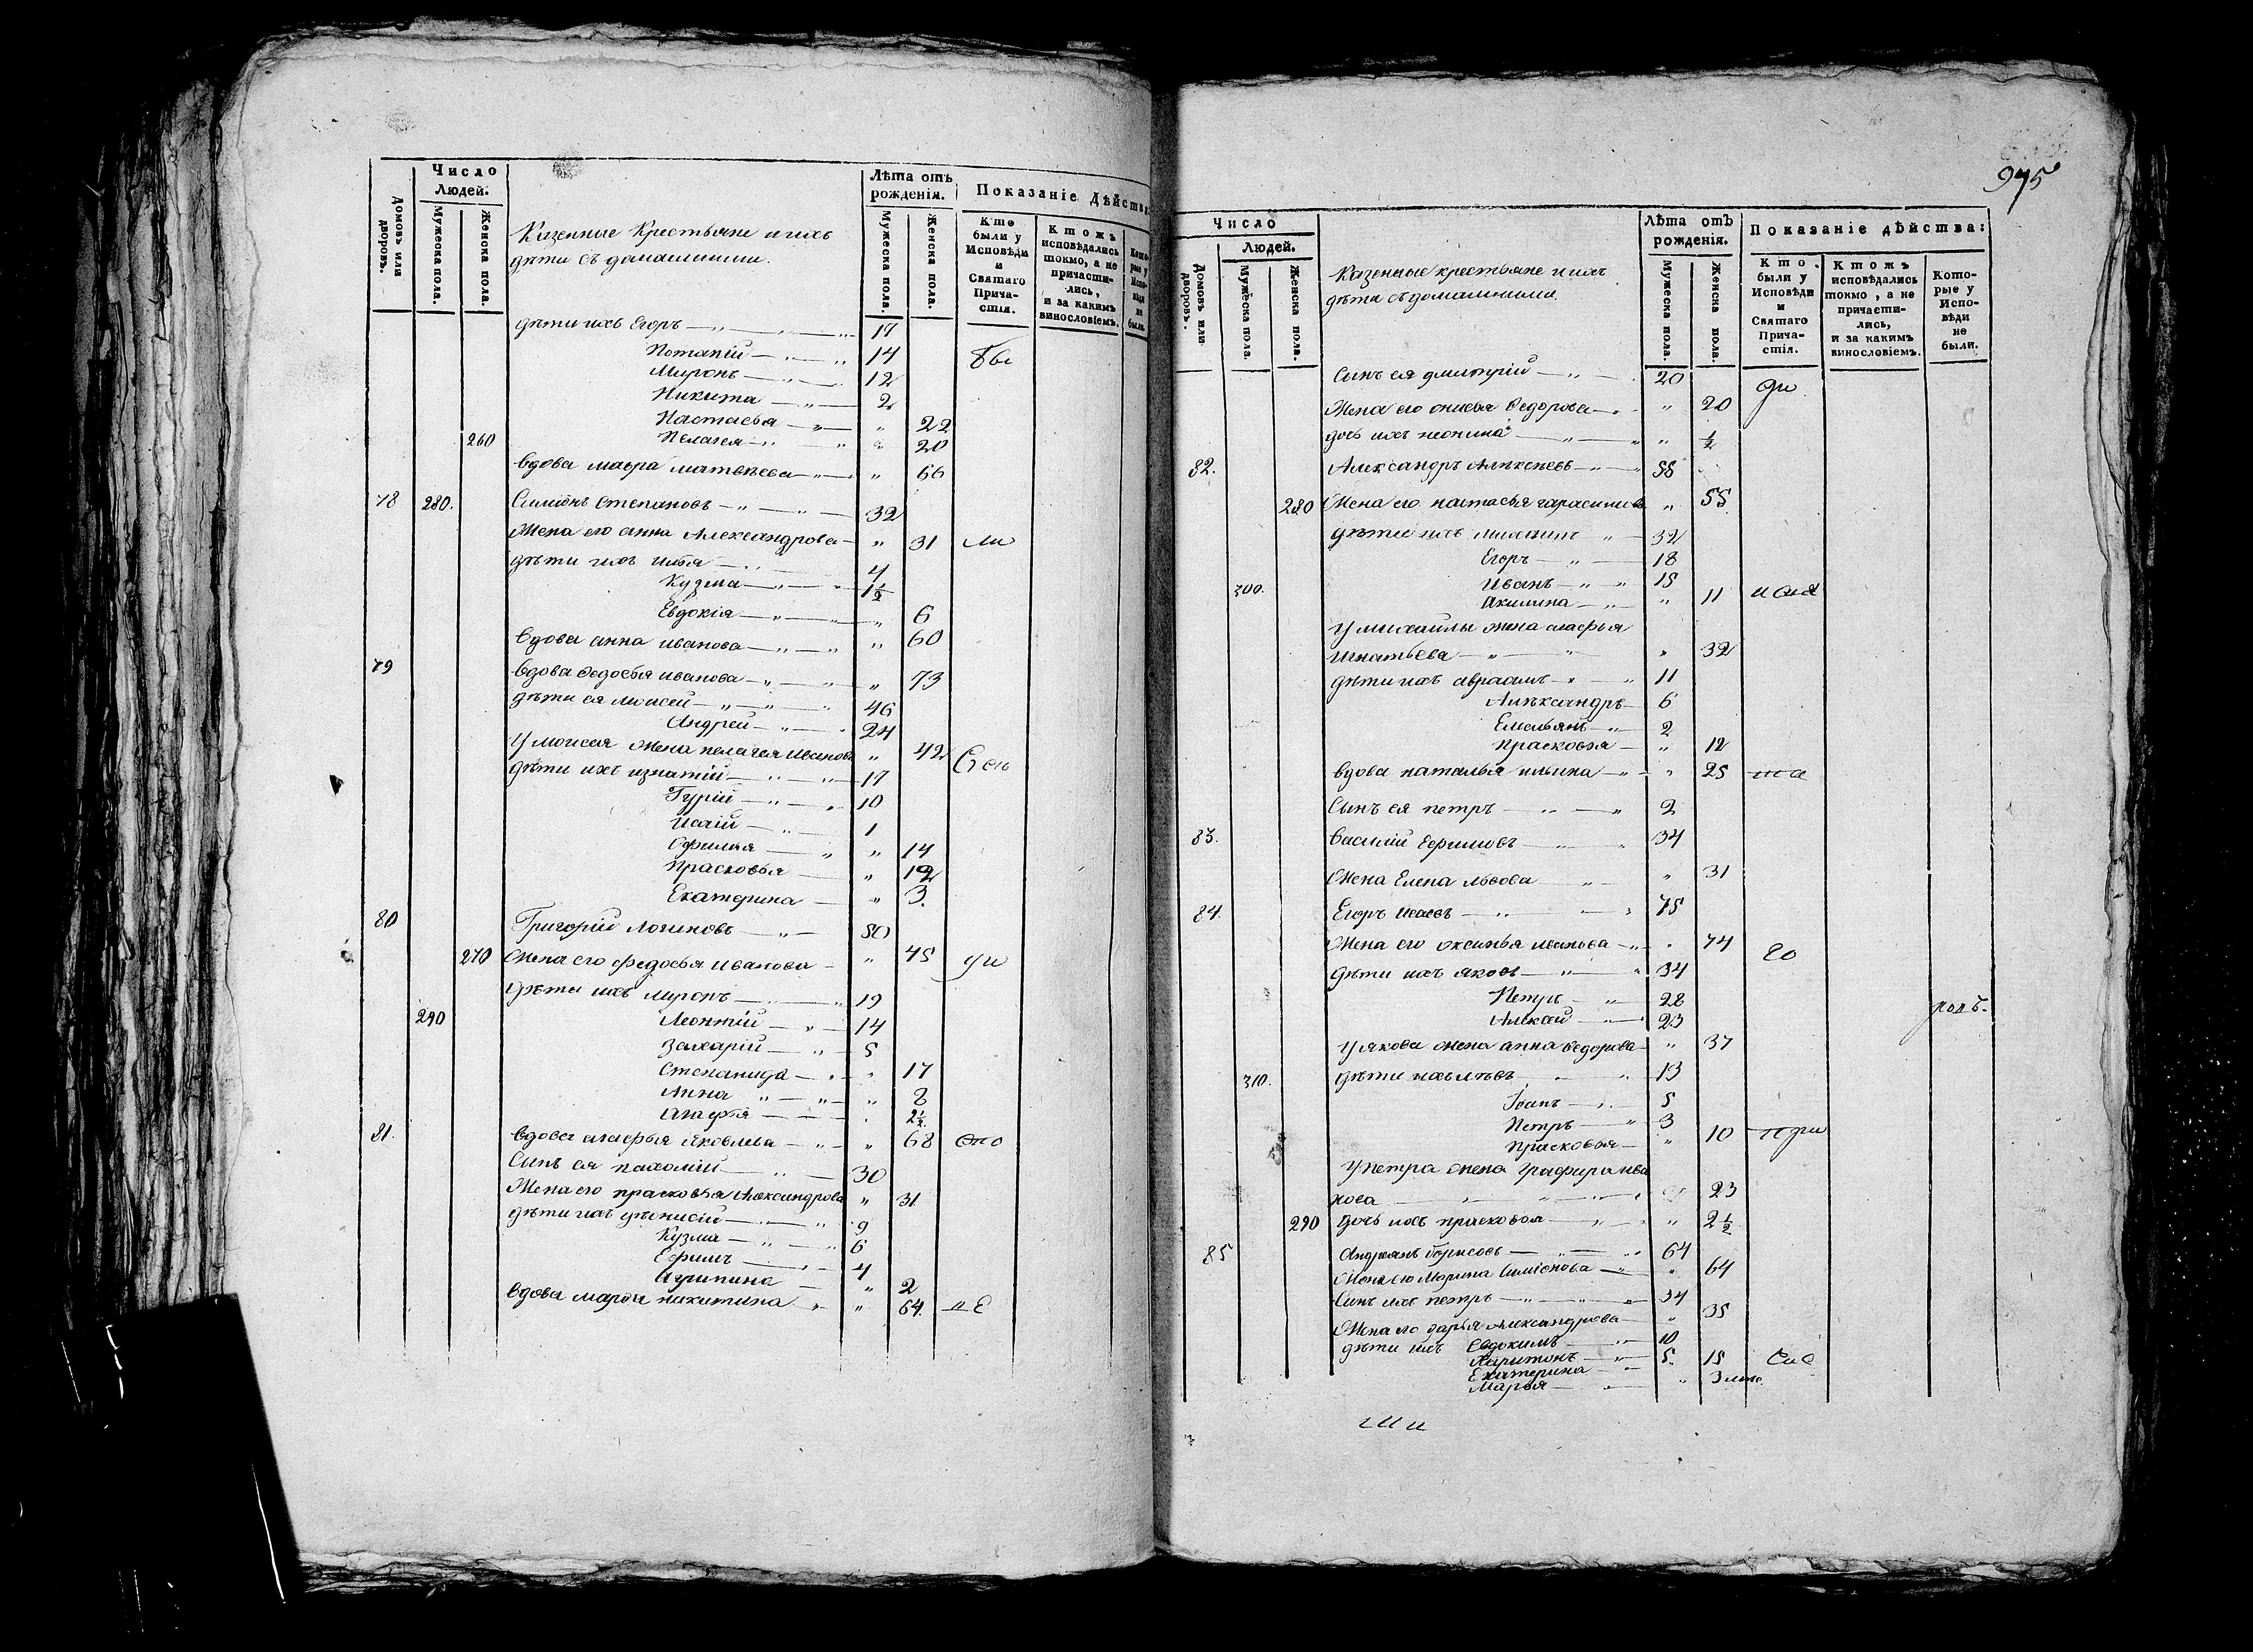 Число
Людей.
Домовъ или дворовъ.
Мужеска пола.
Женска пола.
Казенные Крестьяне и ихъ
дѣти съ домашними.
Лѣта отъ
рожденія.
Мужеска пола.
Женска пола.
Показаніе Дѣйств
Кто
были у
Исповѣди
и
Святаго
Прича-
стія.
Ктожъ
исповѣдались
токмо, а не
причасти-
лись,
и за какимъ
винословіемъ.
Кото-
рые у
Испо-
вѣди
не
были.
дѣти ихъ Егоръ 17
Потапій 14
Миронъ 12
Никита 2
Настасья " 22
260 Пелагея " 20
вдова мавра матвѣева " 66
78 280. Симіонъ Степановъ 32
Жена его анна Александрова " 31
дѣти ихъ илья 4
Кузма 1½
Евдокія " 6
вдова анна иванова " 60
79 вдова Ѳедосья иванова " 73
дѣти ея моисей 46
Андрей 24
У моисея жена пелагея Иванова " 42
дѣти ихъ игнатій 17
Гурій 10
Исаій 1
Офимья " 14
Прасковья " 12
Екатерина " 3.
80 Григорій Логиновъ 50
270 Жена его федосья иванова " 45
дѣти ихъ миронъ 19
290 Леонтій 14
Захарій 5
Степанида " 17
Анна " 8
Агафья 2½.
81. вдова агафья яковлева " 68
Сынъ ея пахомій 30
Жена его прасковья Александрова " 31
дѣти ихъ діонисій 9
Кузма 6
Ефимъ 4
Агрипина " 2
вдова марфа никитина " 64.
975
Число
Людей.
Домовъ или дворовъ.
Мужеска пола.
Женска пола.
Казенные крестьяне и ихъ
дѣти съ домашними.
Лѣта отъ
рожденія.
Мужеска пола.
Женска пола.
Показаніе дѣйства:
Кто
были у
Исповѣди
и
Святаго
Прича-
стія.
Ктожъ
исповѣдались
токмо, а не
причасти-
лись,
и за какимъ
винословіемъ.
Кото-
рые у
Испо-
вѣди
не
были.
Сынъ ея дмитрій 20
Жена его Ѳедорова " 20
дочь ихъ неонила " ½
82. Александръ Алексеевъ 55
280 Жена его настасья гарасимова " 55
дѣти ихъ михаилъ 32
Егоръ 18
300. Иванъ 15
Акилина " 11
У михаилы жена агафья
Игнатьева " 32
дѣти ихъ авраамъ 11
Александръ 6
Емельянъ 2
прасковья " 12
вдова наталья ильина " 25
Сынъ ея петръ 2
83. Василій Ефимовъ 34
Жена Елена львова " 31
84. Егоръ Исаевъ 75
Жена его оксинья иванова " 74
дѣти ихъ яковъ 34
Петръ 28
Алексей 23
У якова жена анна Ѳедорова " 37
310. дѣти ихъ левъ 13
Іоанъ 5
Петръ 3
Прасковья " 10
У петра жена Графира ива
нова 23
290 дочь ихъ прасковья " 2½
85 Андреянъ Борисовъ 64
Жена его Марина Симіонова " 64
Сынъ ихъ петръ 34
Жена его дарья Александрова " 35
дѣти ихъ Евдокимъ 10
Харитонъ 5.
Екатерина 15
Марья " 3